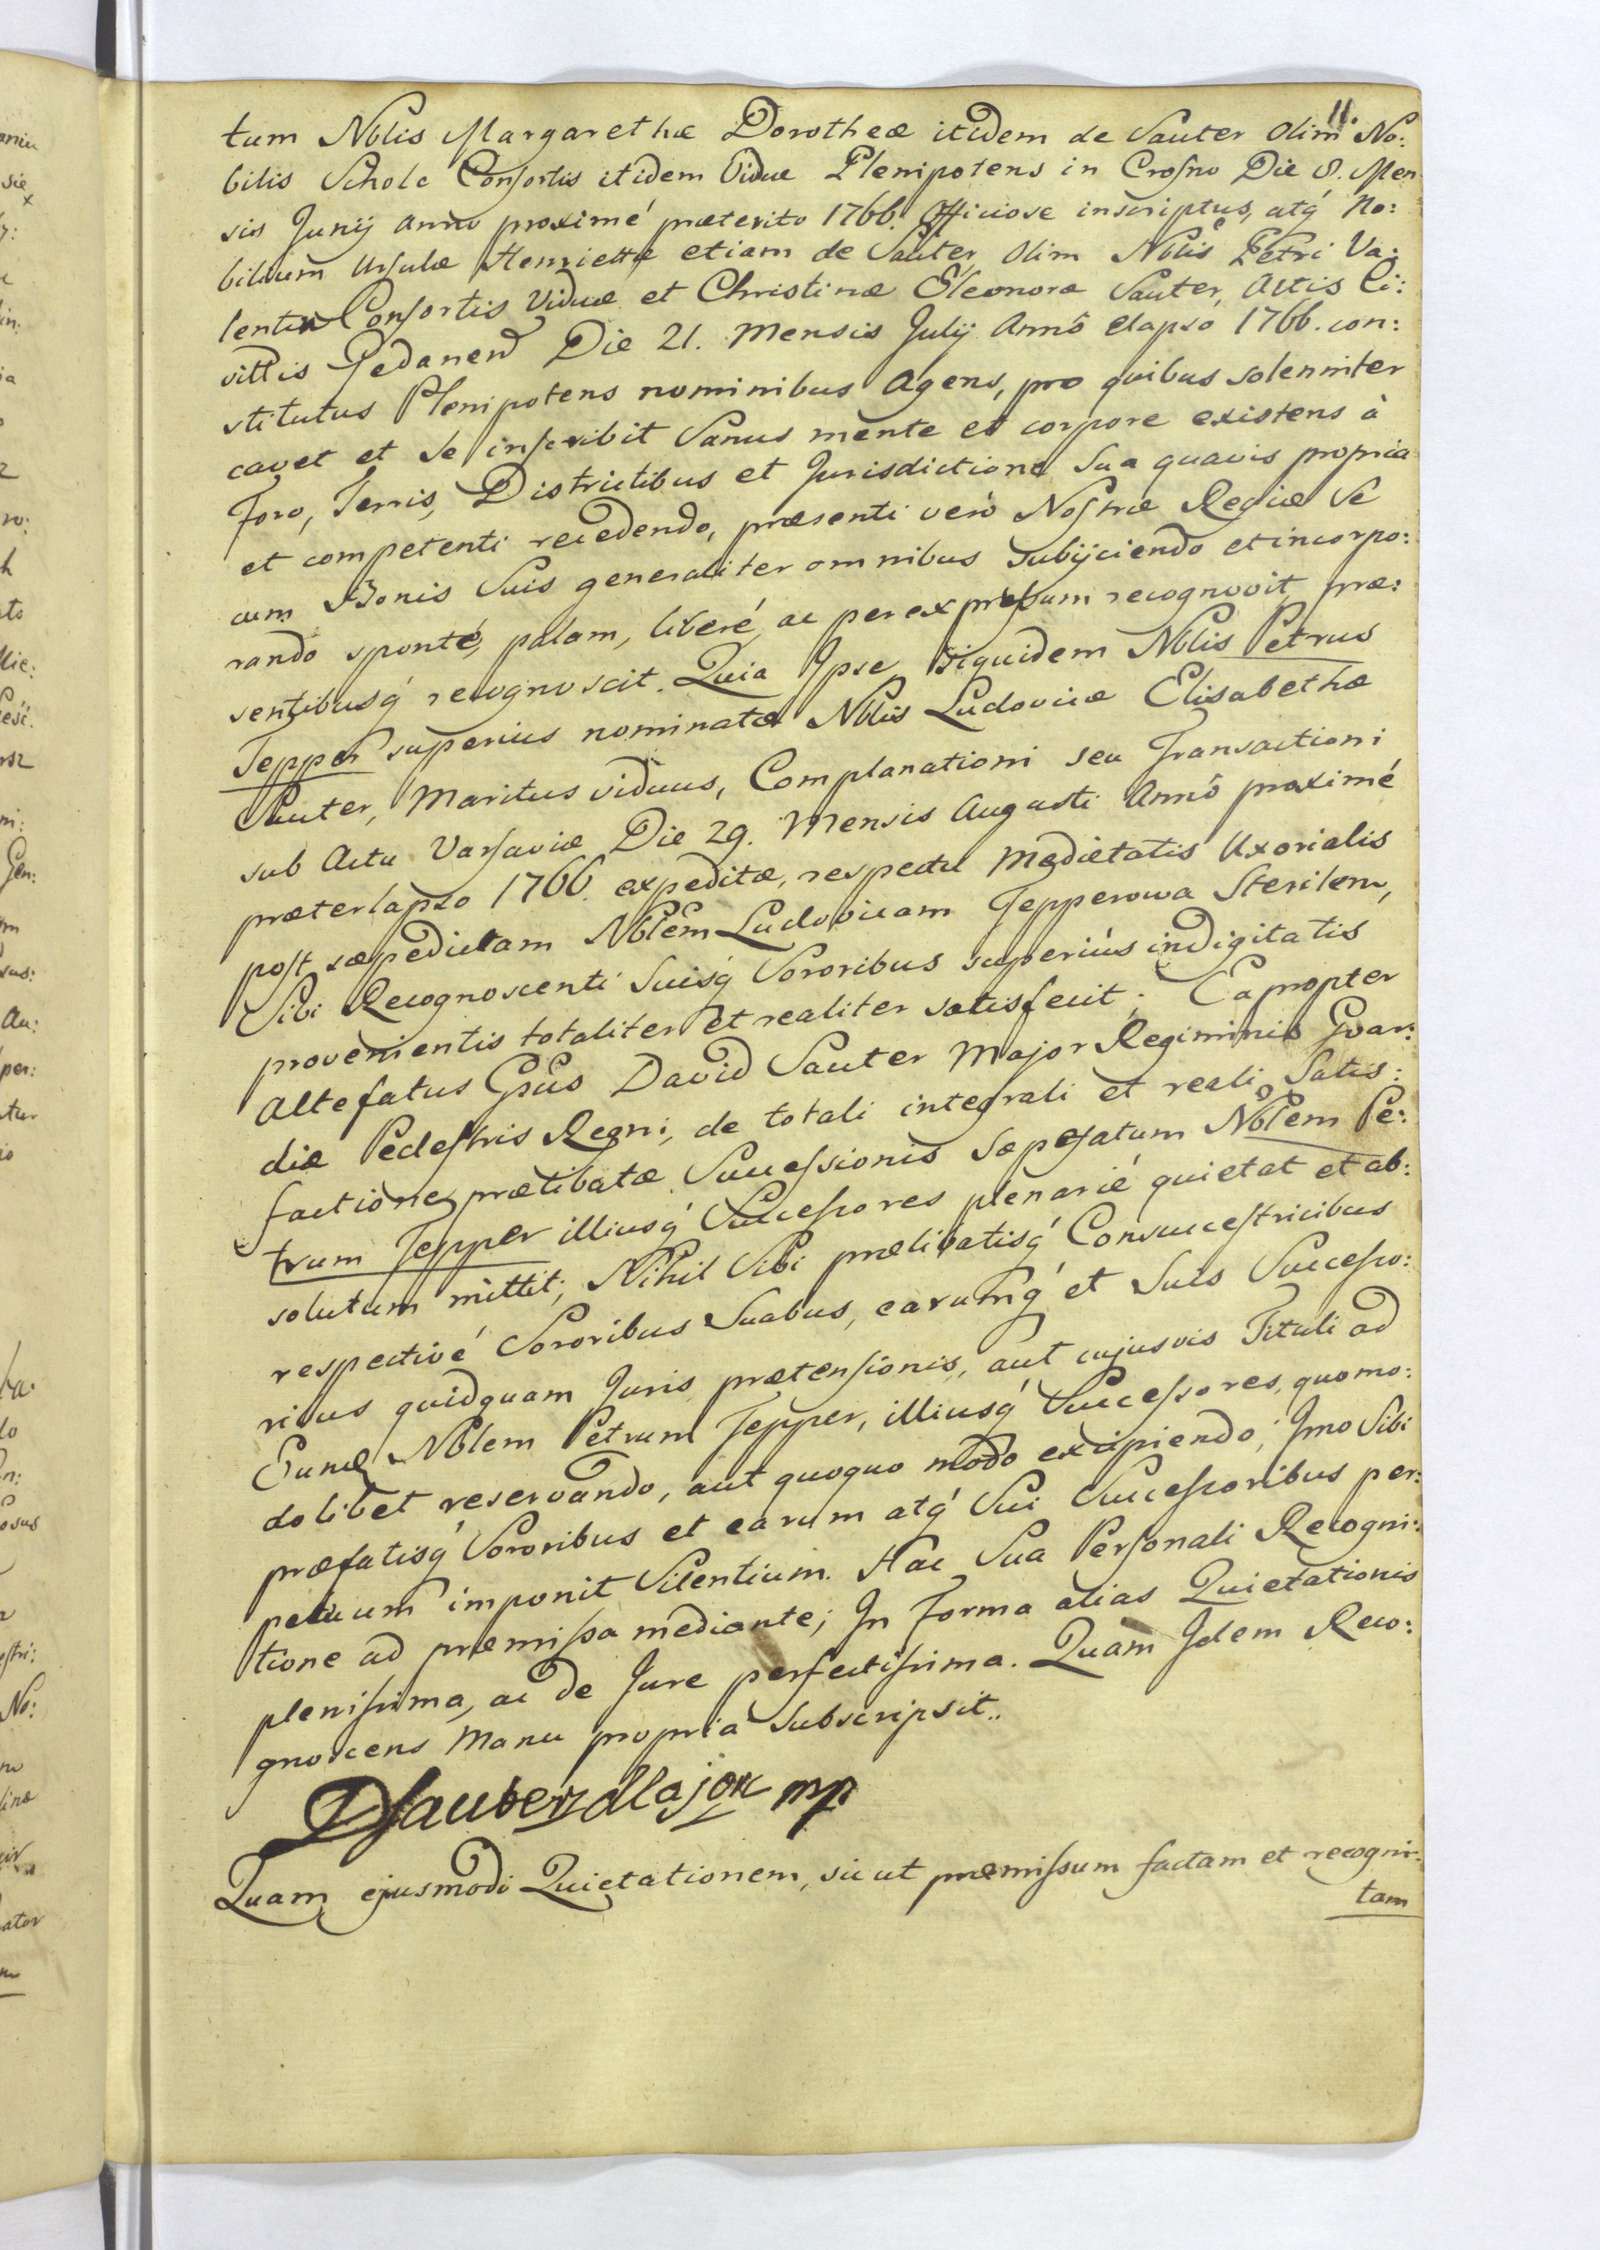 11.
tum Nblis Margarethæ Dorotheæ itidem de Sauter Olim No:
bilis Scholc Consortis itidem Viduæ Plenipotens in Crosno Die 8. Men
sis Junij Anno proximé præterito 1766. Officiose inscriptus, atq́ No:
bilium Ursulæ Henriettæ etiam de Sauter Olim Nblis Petri Va:
lentin Consortis Viduæ et Christinæ Eleonoræ Sauter, Actis Ci:
vilis Gedanens Die 21. Mensis Julij Annô elapso 1766. con:
stitutus Plenipotens nominibus Agens, pro quibus solenniter
cavet et se inscribit Sanus mente et corpore existens à
Foro, Terris, Districtibus et Jurisdictione Sua quavis propria
et competenti recedendo, præsenti verò Nostræ Regiæ Se
cum Bonis Suis generaliter omnibus Subijciendo et incorpo:
rando sponté, palam, liberé, ac per expressum recognovit præ:
sentibusq́ recognoscit. Quia Ipse, siquidem Nblis Petrus
Tepper superius nominatæ Nblis Ludovicæ Elisabethæ
Sauter, Maritus viduus, Complanationi seu Transactioni
sub Actu Varsaviæ Die 29. Mensis Augusti Annô proximé
præterlapso 1766. expeditæ, respectu Medietatis Uxorialis
post sæpedictam Nblem Ludovicam Tepperowa Sterilem,
Sibi Recognoscenti Suisq́ Sororibus superiús indigitatis
provenientis totaliter et realiter satisfecit; Eapropter
Altefatus Gsus David Sauter Major Regiminis Gvar:
diæ Pedestris Regni, de totali integrali et reali Satis:
factione prætibatæ Successionis sæpefatum Nblem Pe:
trum Tepper illiusq́ Successores plenarié quietat et ab:
solutum mittit; Nihil Sibi prælibatisq́ Consuccestricibus
respectivé Sororibus Suabus, earumq́ et Suis Successo:
ribus quidquam Juris prætensionis, aut cujusvis Tituli ad
Eund Nblem Petrum Tepper, illiusq́ Successores, quomo:
dolibet reservando, aut quoquo modo excipiendo; Imo Sibi
præfatisq́ Sororibus et earum atq́ Sui Successoribus per:
petuum imponit Silentium. Hac Sua Personali Recogni:
tione ad præmissa mediante; In Forma alias Quietationis
plenissima, ac de Jure perfectissima. Quam Idem Reco:
gnoscens Manu propria Subscripsit..
DSauter Major mp
Quam ejusmodi Quietationem, sicut præmissum factam et recogni:
tam